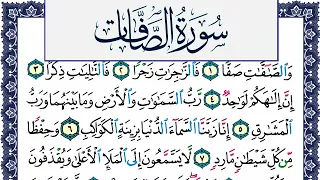 سُورَةُ الصَّافَّاتِ
وَالصَّٰٓفَّٰتِ صَفًّا ١ فَالزَّٰجِرَٰتِ زَجْرًا ٢ فَالتَّٰلِيَٰتِ ذِكْرًا ٣
إِنَّ إِلَٰهَكُمْ لَوَٰحِدٌ ٤ رَّبُّ السَّمَٰوَٰتِ وَالْأَرْضِ وَمَا بَيْنَهُمَا وَرَبُّ
الْمَشَٰرِقِ ٥ إِنَّا زَيَّنَّا السَّمَآءَ الدُّنْيَا بِزِينَةٍ الْكَوَاكِبِ ٦ وَحِفْظًا
مِّن كُلِّ شَيْطَٰنٍ مَّارِدٍ ٧ لَّا يَسَّمَّعُونَ إِلَى الْمَلَإِ الْأَعْلَىٰ وَيُقْذَفُونَ